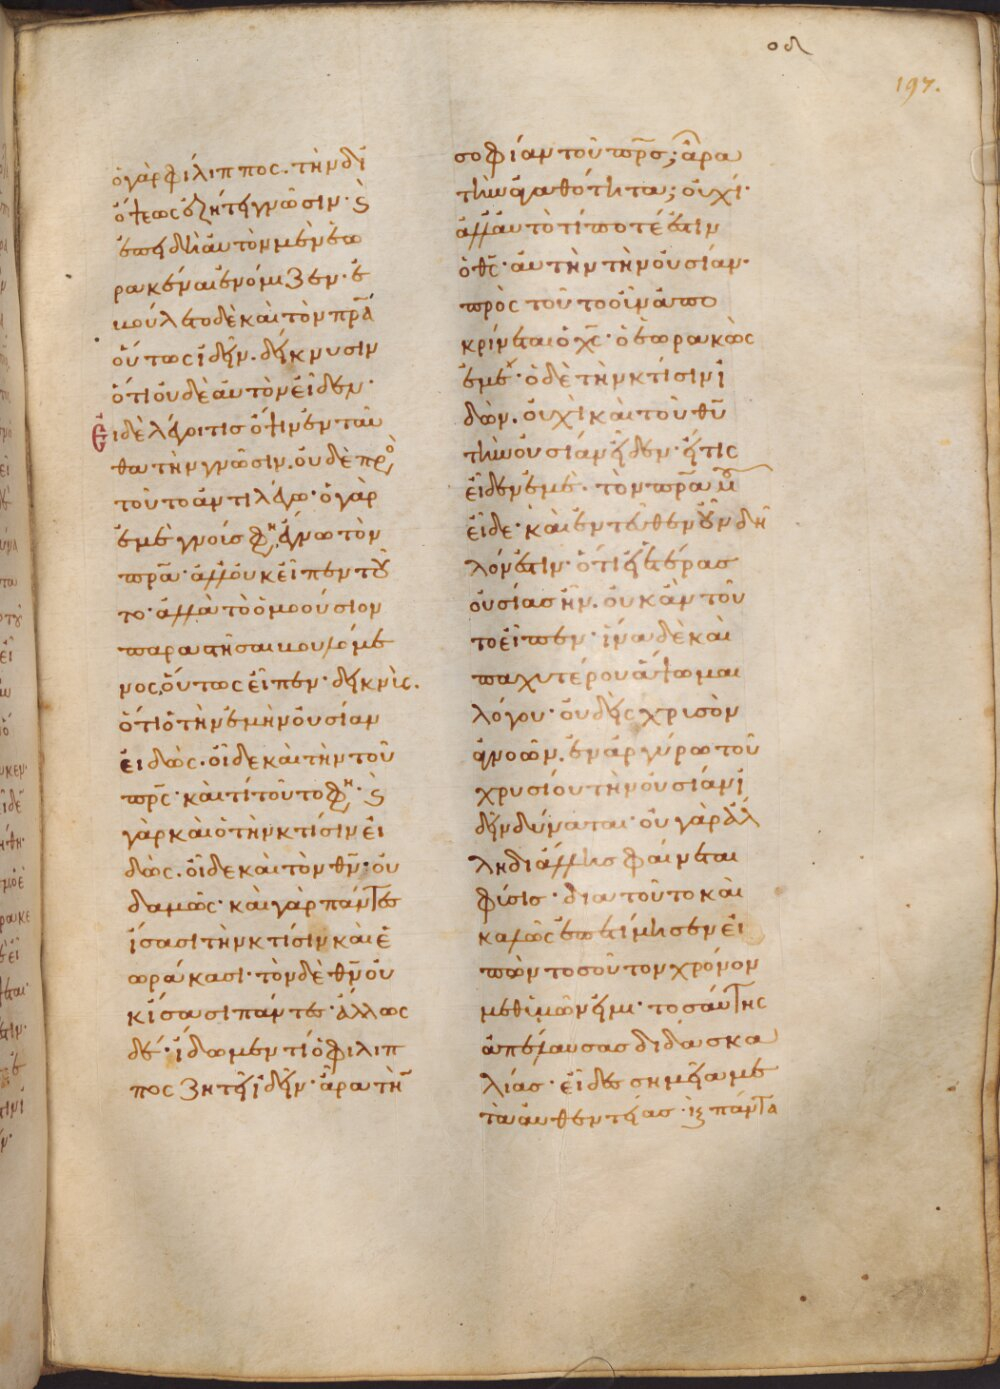 οδ
197.
ὁ γὰρ φίλιππος. τὴν δι
ὄψεως ἐζήτει γνῶσιν· ϗ
ἐπειδὴ αὐτὸν μὲν ἑω
ρακέναι ἐνόμιζεν· ἐ
βούλετο δὲ καὶ τὸν πρ̅α
οὕτως ἰδεῖν. δείκνυσιν
ὅτι οὐδὲ αὐτὸν εἶδεν·
Εἰ δὲ λέγοι τις ὄψιν ἐνταῦ
θα τὴν γνῶσιν. οὐδὲ πρὸ
τοῦτο ἀντιλέγω· ὁ γὰρ
ἐμὲ γνοίς φη, ἔγνω τὸν
πρ̅α· ἀλλ' οὐκ εἶπεν τοῦ
το· ἀλλὰ τὸ ὁμοούσιον
παραστῆσαι βουλόμε
νος, οὕτως εἶπεν· δεικνὺς.
ὅτι ὁ τὴν ἐμὴν οὐσίαν
εἰδὼς. οἶδε καὶ τὴν τοῦ
πρ̅ς· καὶ τί τοῦτο φη· ϗ
γὰρ καὶ ὁ τὴν κτίσιν εἰ
δὼς. οἶδε καὶ τὸν θν̅· οὐ
δαμῶς· καὶ γὰρ πάντες
ἴσασι τὴν κτίσιν καὶ ἑ
ωράκασι· τὸν δὲ θν̅ οὐ
κ ἴσασι πάντες· ἄλλως
δέ· ἴδωμεν τί ὁ φίλιπ
πος ζητεῖ ἰδεῖν· ἆρα τὴν
σοφίαν τοῦ πρ̅σ; ἆρα
τὴν ἀγαθότητα; οὐχί·
ἀλλ' αὐτὸ τί ποτέ ἐστιν
ὁ θς̅· αὐτὴν τὴν οὐσίαν·
πρὸς τοῦτο οἶν ἀπο
κρίνεται ὁ χς̅· ὁ ἑωρακὼς
ἐμέ· ὁ δὲ τὴν κτίσιν ἰ
δὼν. οὐχὶ καὶ τοῦ θυ̅
τὴν οὐσίαν εἶδεν· εἴ τις
εἶδεν ἐμέ. τὸν πρ̅α μου
εἶδε· καὶ ἐντεῦθεν οὖν δῆ
λόν ἐστιν· ὅτι εἰ ἑτέρας
οὐσίας ἦν. οὐκ ἂν τοῦ
το εἶπεν· ἵνα δὲ καὶ
παχυτέρου ἅψωμαι
λόγου· οὐδεὶς χρισὸν
ἀγνοῶν. ἐν ἀργύρω τοῦ
χρυσίου τὴν οὐσίαν ἰ
δεῖν δύναται· οὐ γὰρ ἄλ
λη δι ἄλλης φαίνεται
φύσις· διὰ τοῦτο καὶ
καλῶς ἐπετίμησεν εἰ
πὼν τοσοῦτον χρόνον
μεθ ἡμῶν εἰμι· τοσαύτης
ἀπέλαυσας διδασκα
λίας· εἶδες σημεῖα με
τὰ αὐθεντείας· ϗ πάντα